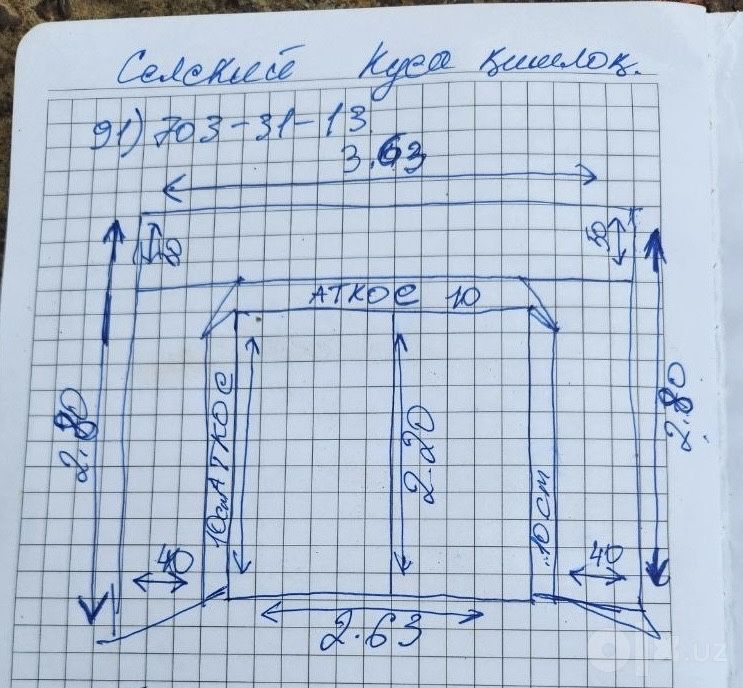 Селский Куса қишлоқ.
91) 703-31-13
3.63
50
50
АТКОС 10
2.80
10см АТКОС
2.20
10 cm
2.80
40
40
2.63